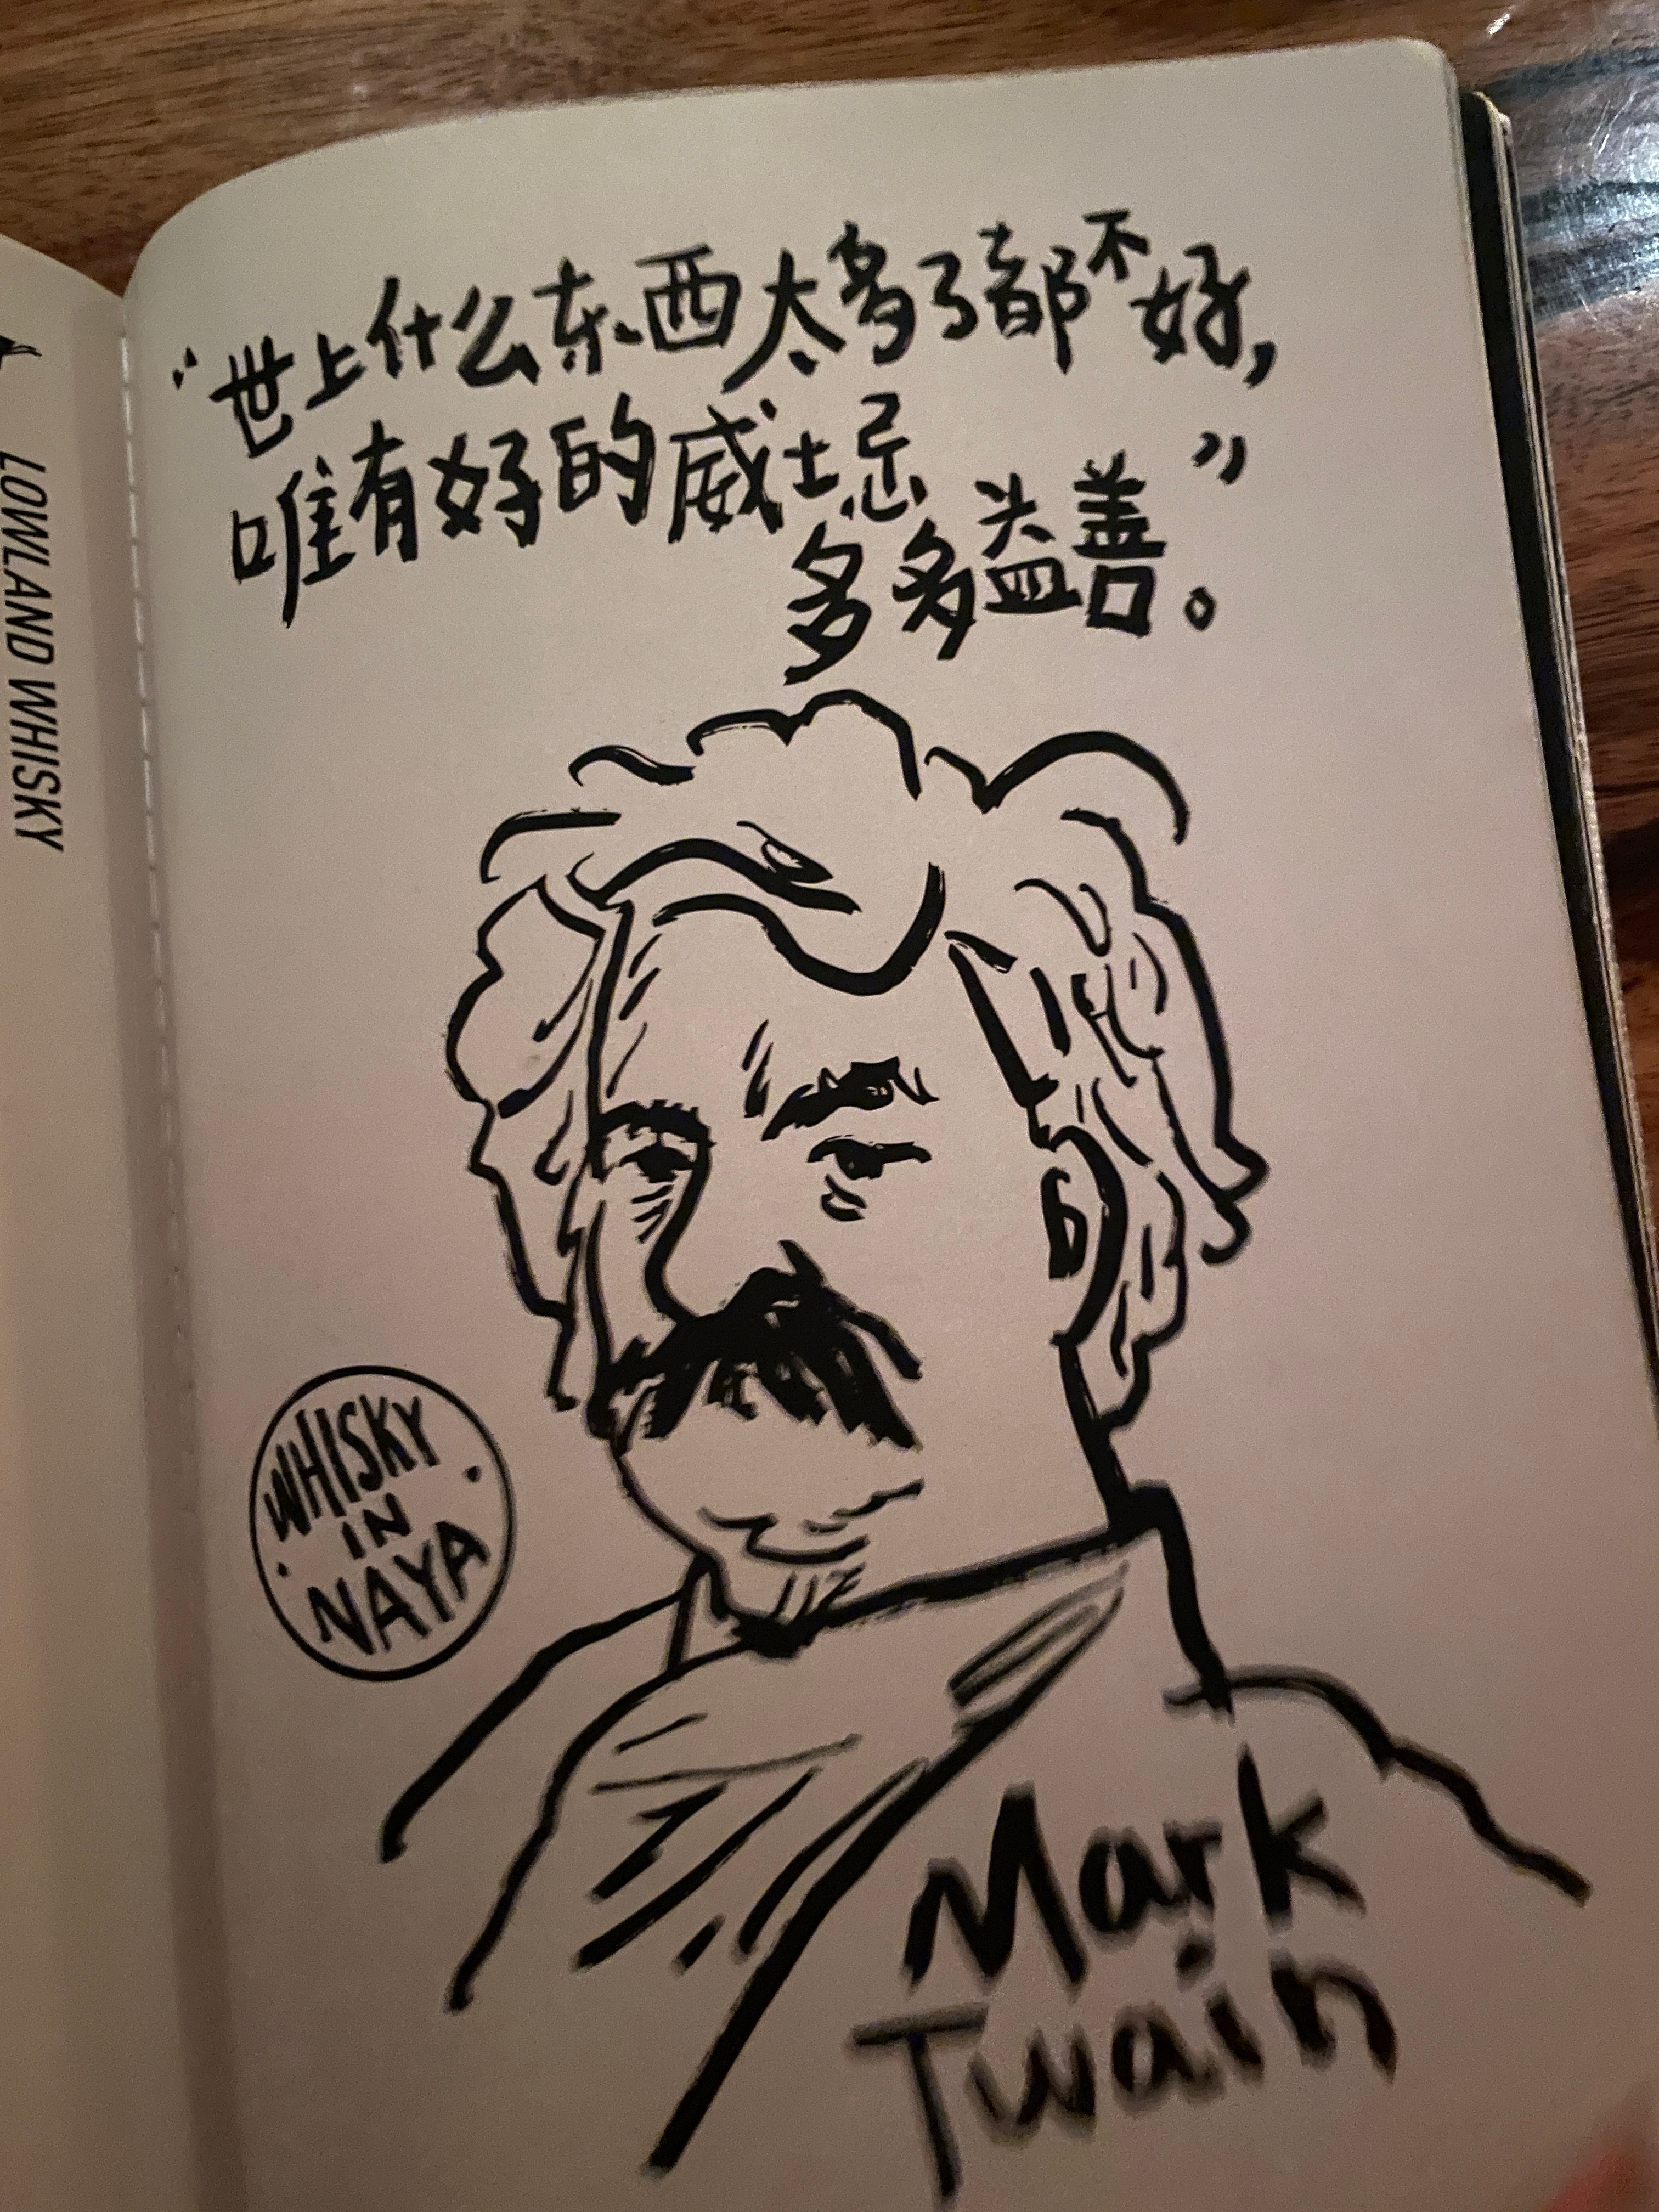 “世上什么东西太多了都不好，
唯有好的威士忌
多多益善。”
LOWLAND WHISKY
WHISKY
IN
NAYA
Mark
Twain